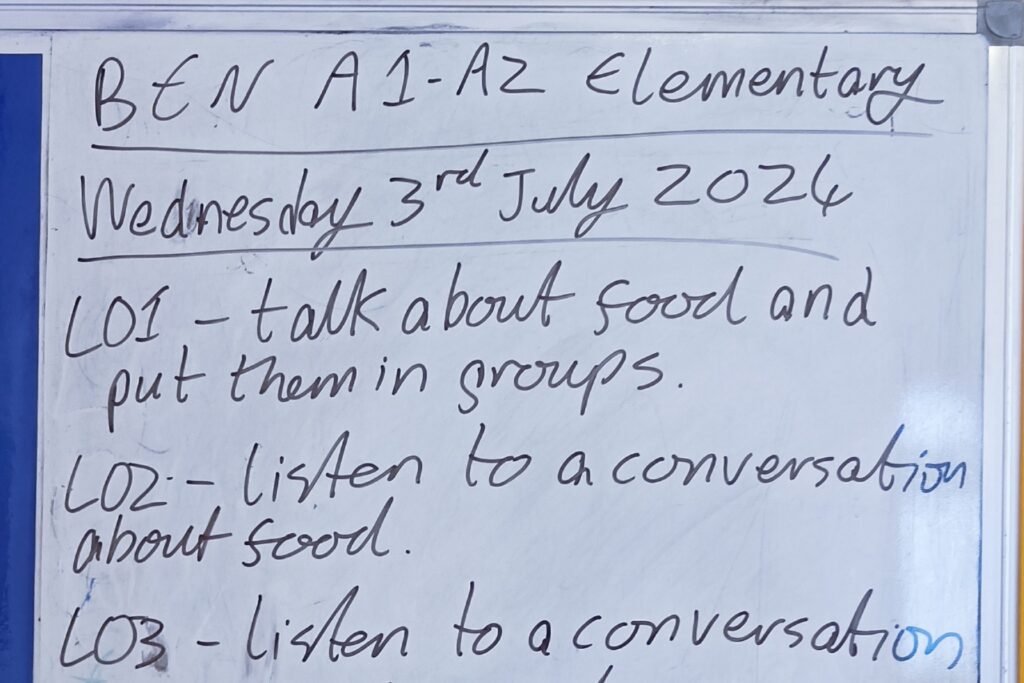 BEN A1-A2 Elementary
Wednesday 3rd July 2024
LO1 - talk about food and
put them in groups.
LO2 - listen to a conversation
about food.
LO3 - listen to a conversation